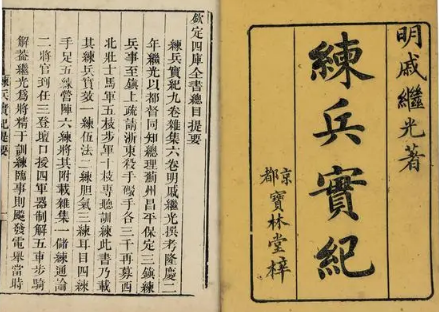 明戚繼光著
練兵實紀
京都寶林堂梓
欽定四庫全書總目提要
練兵實紀九卷雜集六卷明戚繼光撰考隆慶二
年繼光以都督同知總理薊州昌平保定三鎮練
兵事至鎮上疏請浙東殺手礟手各三千再募西
北壯士馬軍五枝步軍十枝專聽訓練此書乃載
其練兵實效一練伍法二練胆氣三練耳目四練
手足五練營陣六練將其附載雜集一儲練通論
二將官到任三登壇口授四軍器制解五車步騎
解蓋繼光為將精于訓練臨事則飈發電舉當時
練兵實紀提要